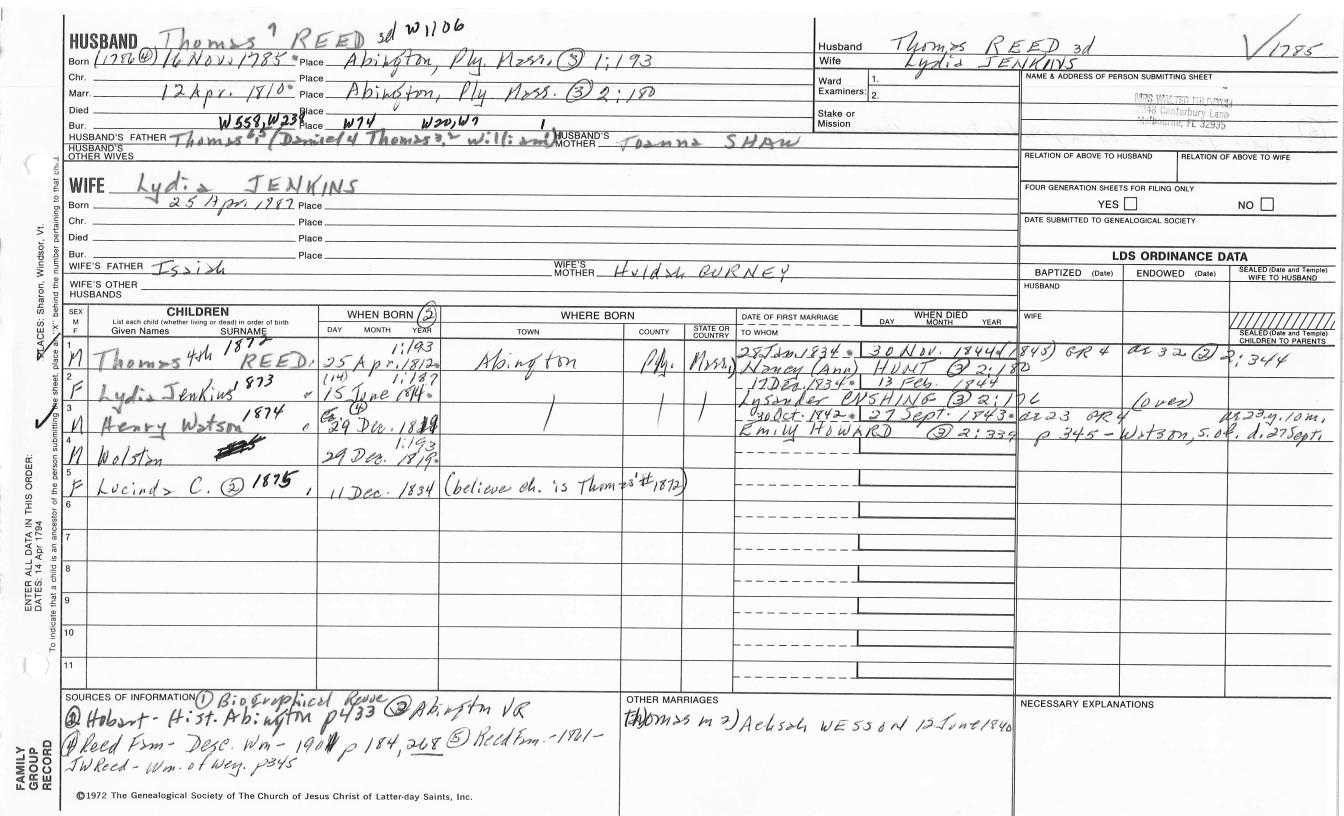 HUSBAND Thomas 7 REED 3d W1106
Born (1786 ④) 16 Nov. 1785 Place Abington, Ply. Mass. ③ 1:193
Chr. Place
Marr. 12 Apr. 1810 Place Abington, Ply Mass. ③ 2:180
Died Place
Bur. W558, W238 Place W74 W20, W7 1
HUSBAND'S FATHER Thomas 6,5 (Daniel 4 Thomas 3,2 William) HUSBAND'S MOTHER Joanna SHAW
HUSBAND'S OTHER WIVES
Husband Thomas REED 3d
Wife Lydia JENKINS
√ 1785
Ward Examiners: 1.
2.
Stake or Mission
NAME & ADDRESS OF PERSON SUBMITTING SHEET
Canterbury Lane
Melbourne, FL 32935
RELATION OF ABOVE TO HUSBAND RELATION OF ABOVE TO WIFE
FOUR GENERATION SHEETS FOR FILING ONLY
YES NO
DATE SUBMITTED TO GENEALOGICAL SOCIETY
WIFE Lydia JENKINS
Born 25 Apr. 1787 Place
Chr. Place
Died Place
Bur. Place
WIFE'S FATHER Isaiah WIFE'S MOTHER Huldah GURNEY
WIFE'S OTHER HUSBANDS
LDS ORDINANCE DATA
BAPTIZED (Date) ENDOWED (Date) SEALED (Date and Temple) WIFE TO HUSBAND
HUSBAND
WIFE
SEALED (Date and Temple) CHILDREN TO PARENTS
SEX M F CHILDREN List each child (whether living or dead) in order of birth Given Names SURNAME
WHEN BORN ② DAY MONTH YEAR
WHERE BORN TOWN COUNTY STATE OR COUNTRY
DATE OF FIRST MARRIAGE TO WHOM
WHEN DIED DAY MONTH YEAR
1 M Thomas 4th 1872 REED, 25 Apr. 1812 1:193 Abington Ply. Mass. 28 Jan. 1834 30 Nov. 1844 (1845) GR 4 ae 32 ② 2:344
Nancy (Ann) HUNT ③ 2:180
2 F Lydia Jenkins 1873 " (14) 15 June 1814 1:187 17 Dec. 1834 13 Feb. 1844
Lysander CUSHING ③ 2:176 (over)
3 M Henry Watson 1874 " ④ 29 Dec. 1819 30 Oct. 1842 27 Sept. 1843 ae 23 GR 4 ae 23 y. 10 m.
Emily HOWARD ③ 2:339 p 345 - Watson, s. of. d. 27 Sept.
4 M Wolston 29 Dec. 1819 1:193
5 F Lucinda C. ② 1875 , 11 Dec. 1834 (believe ch. is Thomas' #1872)
6
7
8
9
10
11
SOURCES OF INFORMATION ① Biographical Revue
② Hobart - Hist. Abington p433 ③ Abington VR
④ Reed Fam - Desc. Wm - 1901 p 184, 268 ⑤ Reed Fam. - 1901 -
JW Reed - Wm. of Wey. p345
OTHER MARRIAGES
Thomas m 2) Achsah WESSON 12 June 1840
NECESSARY EXPLANATIONS
©1972 The Genealogical Society of The Church of Jesus Christ of Latter-day Saints, Inc.
FAMILY GROUP RECORD
ENTER ALL DATA IN THIS ORDER:
DATES: 14 Apr 1794
PLACES: Sharon, Windsor, Vt.
To indicate that a child is an ancestor of the person submitting the sheet, place an "X" behind the number pertaining to that child.